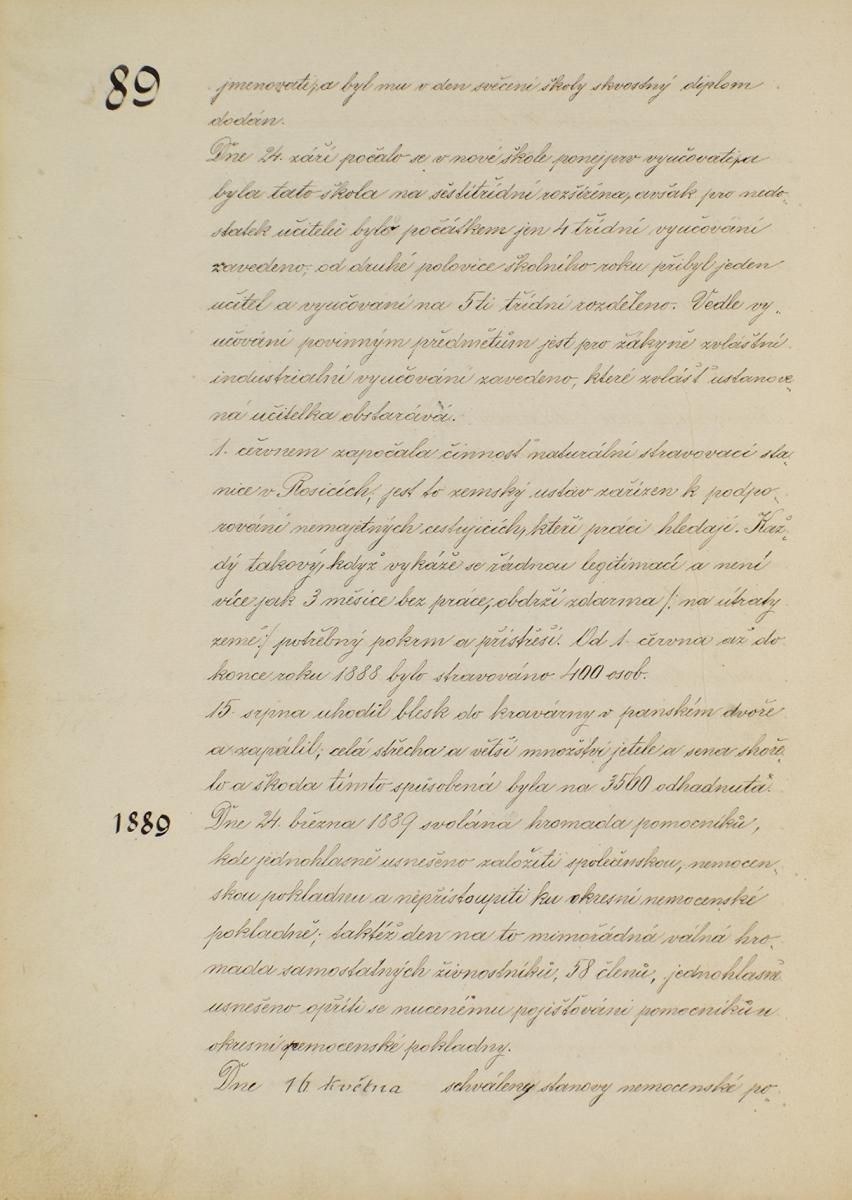 89
jmenovati, a byl mu v den svěcení školy skvostný diplom
dodán.
Dne 24. září počalo se v nové škole ponejprv vyučovati, a
byla tato škola na šestitřídní rozšířena, avšak pro nedo-
statek učitelů bylo počátkem jen 4 třídní vyučování
zavedeno, od druhé polovice školního roku přibyl jeden
učitel a vyučování na 5ti třídní rozděleno. Vedle vy-
učování povinným předmětům jest pro žákyně zvláštní
industriální vyučování zavedeno, které zvlášť ustanove-
ná učitelka obstarává.
1. červnem započala činnost naturální stravovací sta-
nice v Rosicích, jest to zemský ustav zařízen k podpo-
rování nemajetných cestujících, kteří práci hledají. Kaž-
dý takový, když vykáže se řádnou legitimací a není
více jak 3 měsíce bez práce, obdrží zdarma /: na útraty
země :/ potřebný pokrm a přístřeší. Od 1. června až do
konce roku 1888 bylo stravováno 400 osob.
15. srpna uhodil blesk do kravárny v panském dvoře
a zapálil; celá střecha a větší množství jetele a sena shoře-
lo a škoda tímto spůsobená byla na 3500 odhadnuta.
1889
Dne 24. března 1889 svolána hromada pomocníků,
kde jednohlasně usnešeno založiti společenskou, nemocen-
skou pokladnu a nepřistoupiti ku okresní nemocenské
pokladně; taktéž den na to mimořádná válná hro-
mada samostatných živnostníků, 58 členů, jednohlasně
usnešeno opříti se nucenému pojišťování pomocníků u
okresní nemocenské pokladny.
Dne 16 května schváleny stanovy nemocenské po-